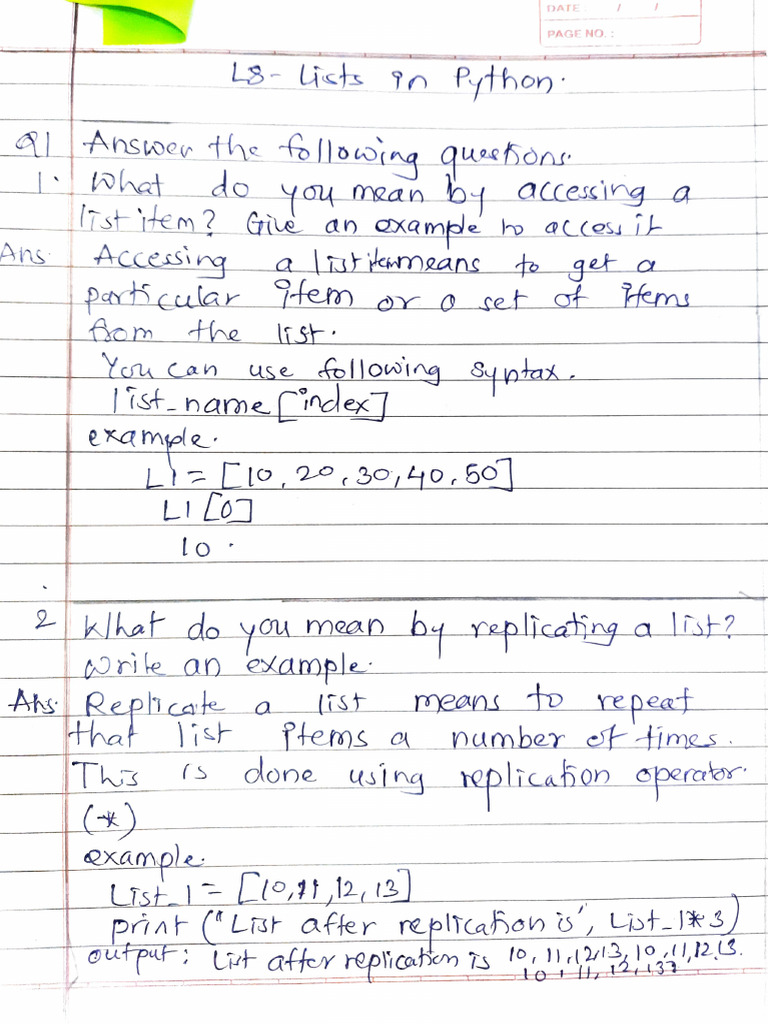 DATE: / /
PAGE NO.:
L8 - Lists in Python.
Q1 Answer the following questions.
1. What do you mean by accessing a
list item? Give an example to access it
Ans. Accessing a list item means to get a
particular item or a set of items
from the list.
You can use following syntax.
list_name [index]
example.
L1 = [10, 20, 30, 40, 50]
L1 [0]
10.
2 What do you mean by replicating a list?
Write an example.
Ans. Replicate a list means to repeat
that list items a number of times.
This is done using replication operator.
(*)
example.
List_1 = [10, 11, 12, 13]
print ("List after replication is", List_1*3)
output: List after replication is 10, 11, 12, 13, 10, 11, 12, 13.
10, 11, 12, 13